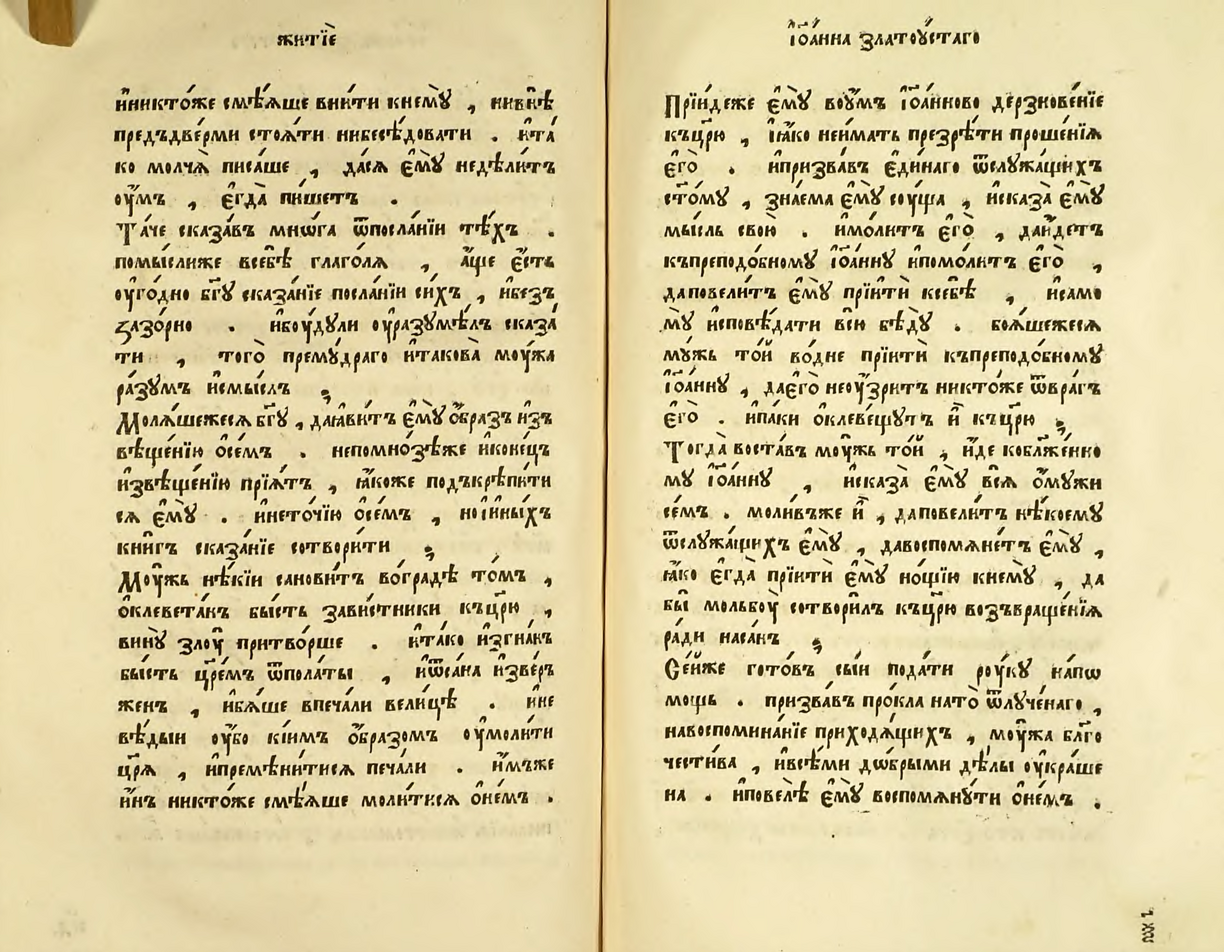 житїѐ
ѝникто́же смѣ́ѧше вни́ти кнемꙋ̀ , нивнѣ̀
предъдве́рми стоѧ́ти нибесѣ́довати . ѝта́
ко молчѧ̀ писа́ше , да́сѧ є҆мꙋ̀ недѣли́тъ
оу҆́мъ , є҆гда̀ пи́шетъ .
Та́че сказа́въ мнѡ́га ѿпосла́нїи тѣ́хъ .
помы́слиже всебѣ̀ глаго́лѧ , а҆́ще є҆́сть
оу҆го́дно бг҃ꙋ сказа́нїе посла́нїи си́хъ , и҆без̾
зазо́рно . и҆боу́дꙋли оу҆разꙋмѣ́лъ сказа́
ти , того̀ премꙋ́драго и҆такова̀ моу́жа
ра́зꙋмъ и҆мы́слъ
Молѧ́шежесѧ бг҃ꙋ , даꙗ҆ви́тъ є҆мꙋ̀ о҆́браз̾ и҆з̾
вѣще́нїю о҆се́мъ . непомно́зѣже и҆коне́цъ
и҆звѣще́нїю прїѧ́тъ , ꙗ҆́коже подъкрѣпи́ти
сѧ є҆мꙋ̀ . и҆нето́чїю о҆се́мъ , нои҆и҆ны́хъ
кни́гъ сказа́нїе сотвори́ти
Моу́жь нѣ́кїи санови́тъ воградѣ̀ то́мъ ,
о҆клевета́нъ бы́сть зави́стники къцр҃ю ,
винꙋ̀ злоу̀ притво́рше . и҆та́ко и҆згна́нъ
бы́сть цр҃емъ ѿпола́ты , и҆ѿса́на и҆зве́р
женъ , и҆бѧ́ше впеча́ли вели́цѣ . и҆не
вѣ́дыи оу҆́бо кі́имъ о҆́бразомъ оу҆моли́ти
цр҃ѧ̀ , и҆премѣни́тисѧ печа́ли . и҆́мъже
и҆́нъ никто́же смѣ́ѧше моли́тисѧ о҆не́мъ .
і҆ѡа́нна златоу́стаго
Прїи́деже є҆мꙋ̀ воу́мъ і҆ѡа́нново дерзнове́нїе
къцр҃ю , ꙗ҆́ко неи́мать презрѣ́ти проше́нїѧ
є҆гѡ̀ . и҆призва́въ є҆ди́наго ѿслꙋжа́щихъ
ст҃о́мꙋ , зна́ема є҆мꙋ̀ соу́ща , и҆сказа̀ є҆мꙋ̀
мы́сль свою̀ . и҆мо́литъ є҆го̀ , даи҆́детъ
къпреподо́бномꙋ і҆ѡа́ннꙋ и҆помо́литъ є҆го̀ ,
даповели́тъ є҆мꙋ̀ прїитѝ ксебѣ̀ , и҆само
мꙋ̀ и҆сповѣ́дати всю̀ бѣ́дꙋ . боѧ́шежесѧ
мꙋ́жь то́и во́дне прїитѝ къпреподо́бномꙋ
і҆ѡа́ннꙋ , дає҆го̀ неоу҆́зритъ никто́же ѿвра́гъ
є҆гѡ̀ . и҆па́ки о҆клеве́щꙋтъ и҆̀ къцр҃ю
Тогда̀ воста́въ моу́жь то́и , и҆́де кобл҃же́нно
мꙋ і҆ѡа́ннꙋ , и҆сказа̀ є҆мꙋ̀ всѧ̀ о҆мꙋ́жи
се́мъ . моли́въже и҆̀ , даповели́тъ нѣ́коемꙋ
ѿслꙋжа́щихъ є҆мꙋ̀ , давоспомѧне́тъ є҆мꙋ̀ ,
ꙗ҆́ко є҆гда̀ прїитѝ є҆мꙋ̀ но́щїю кнемꙋ̀ , да
бы̀ мольбоу̀ сотвори́лъ къцр҃ю возъвраще́нїѧ
ра́ди наса́нъ
Се́йже гото́въ сы́и пода́ти роу́кꙋ на́пѡ
мощь . призва́въ про́кла нато̀ ѿлꙋче́наго ,
навоспомина́нїе приходѧ́щихъ , моу́жа бл҃го
чести́ва , и҆все́ми дѡ́брыми дѣ́лы оу҆кра́ше
на . и҆повелѣ̀ є҆мꙋ̀ воспомѧнꙋ́ти о҆не́мъ .